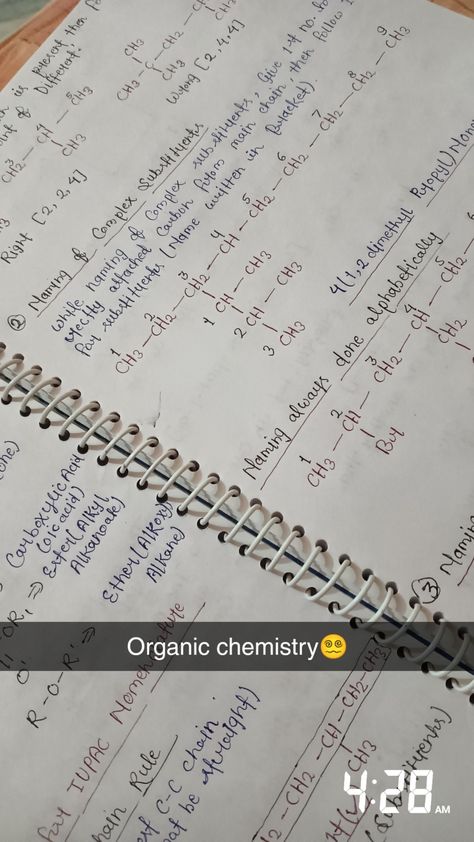 is present then
Different.
CH3 — CH2 —
CH3
CH3
Wrong [2,4,4]
CH2 — CH — CH3
CH3
Right [2,2,4]
② Naming of Complex Substituents
While naming of Complex substituents, Give 1st no.
directly attached Carbon from main chain, then follow
for substituents (Name written in Bracket).
1 2 3 4 5 6 7 8 9
CH3 — CH2 — CH2 — CH — CH2 — CH2 — CH2 — CH2 — CH3
1 CH — CH3
2 CH — CH3
3 CH3
4(1,2 dimethyl Propyl)
Naming always done alphabetically
1 2 3 4 5
CH3 — CH — CH2 — CH — CH2
Br CH2
③ Naming
Carboxylic Acid
(oic acid)
Ester (Alkyl
Alkanoate)
R-O-R' => Ether (Alkoxy
Alkane)
for IUPAC Nomenclature
Chain Rule
C-C chain
not be straight)
CH2 — CH — CH2 — CH3
CH3
Organic chemistry😵‍💫
4:28 AM